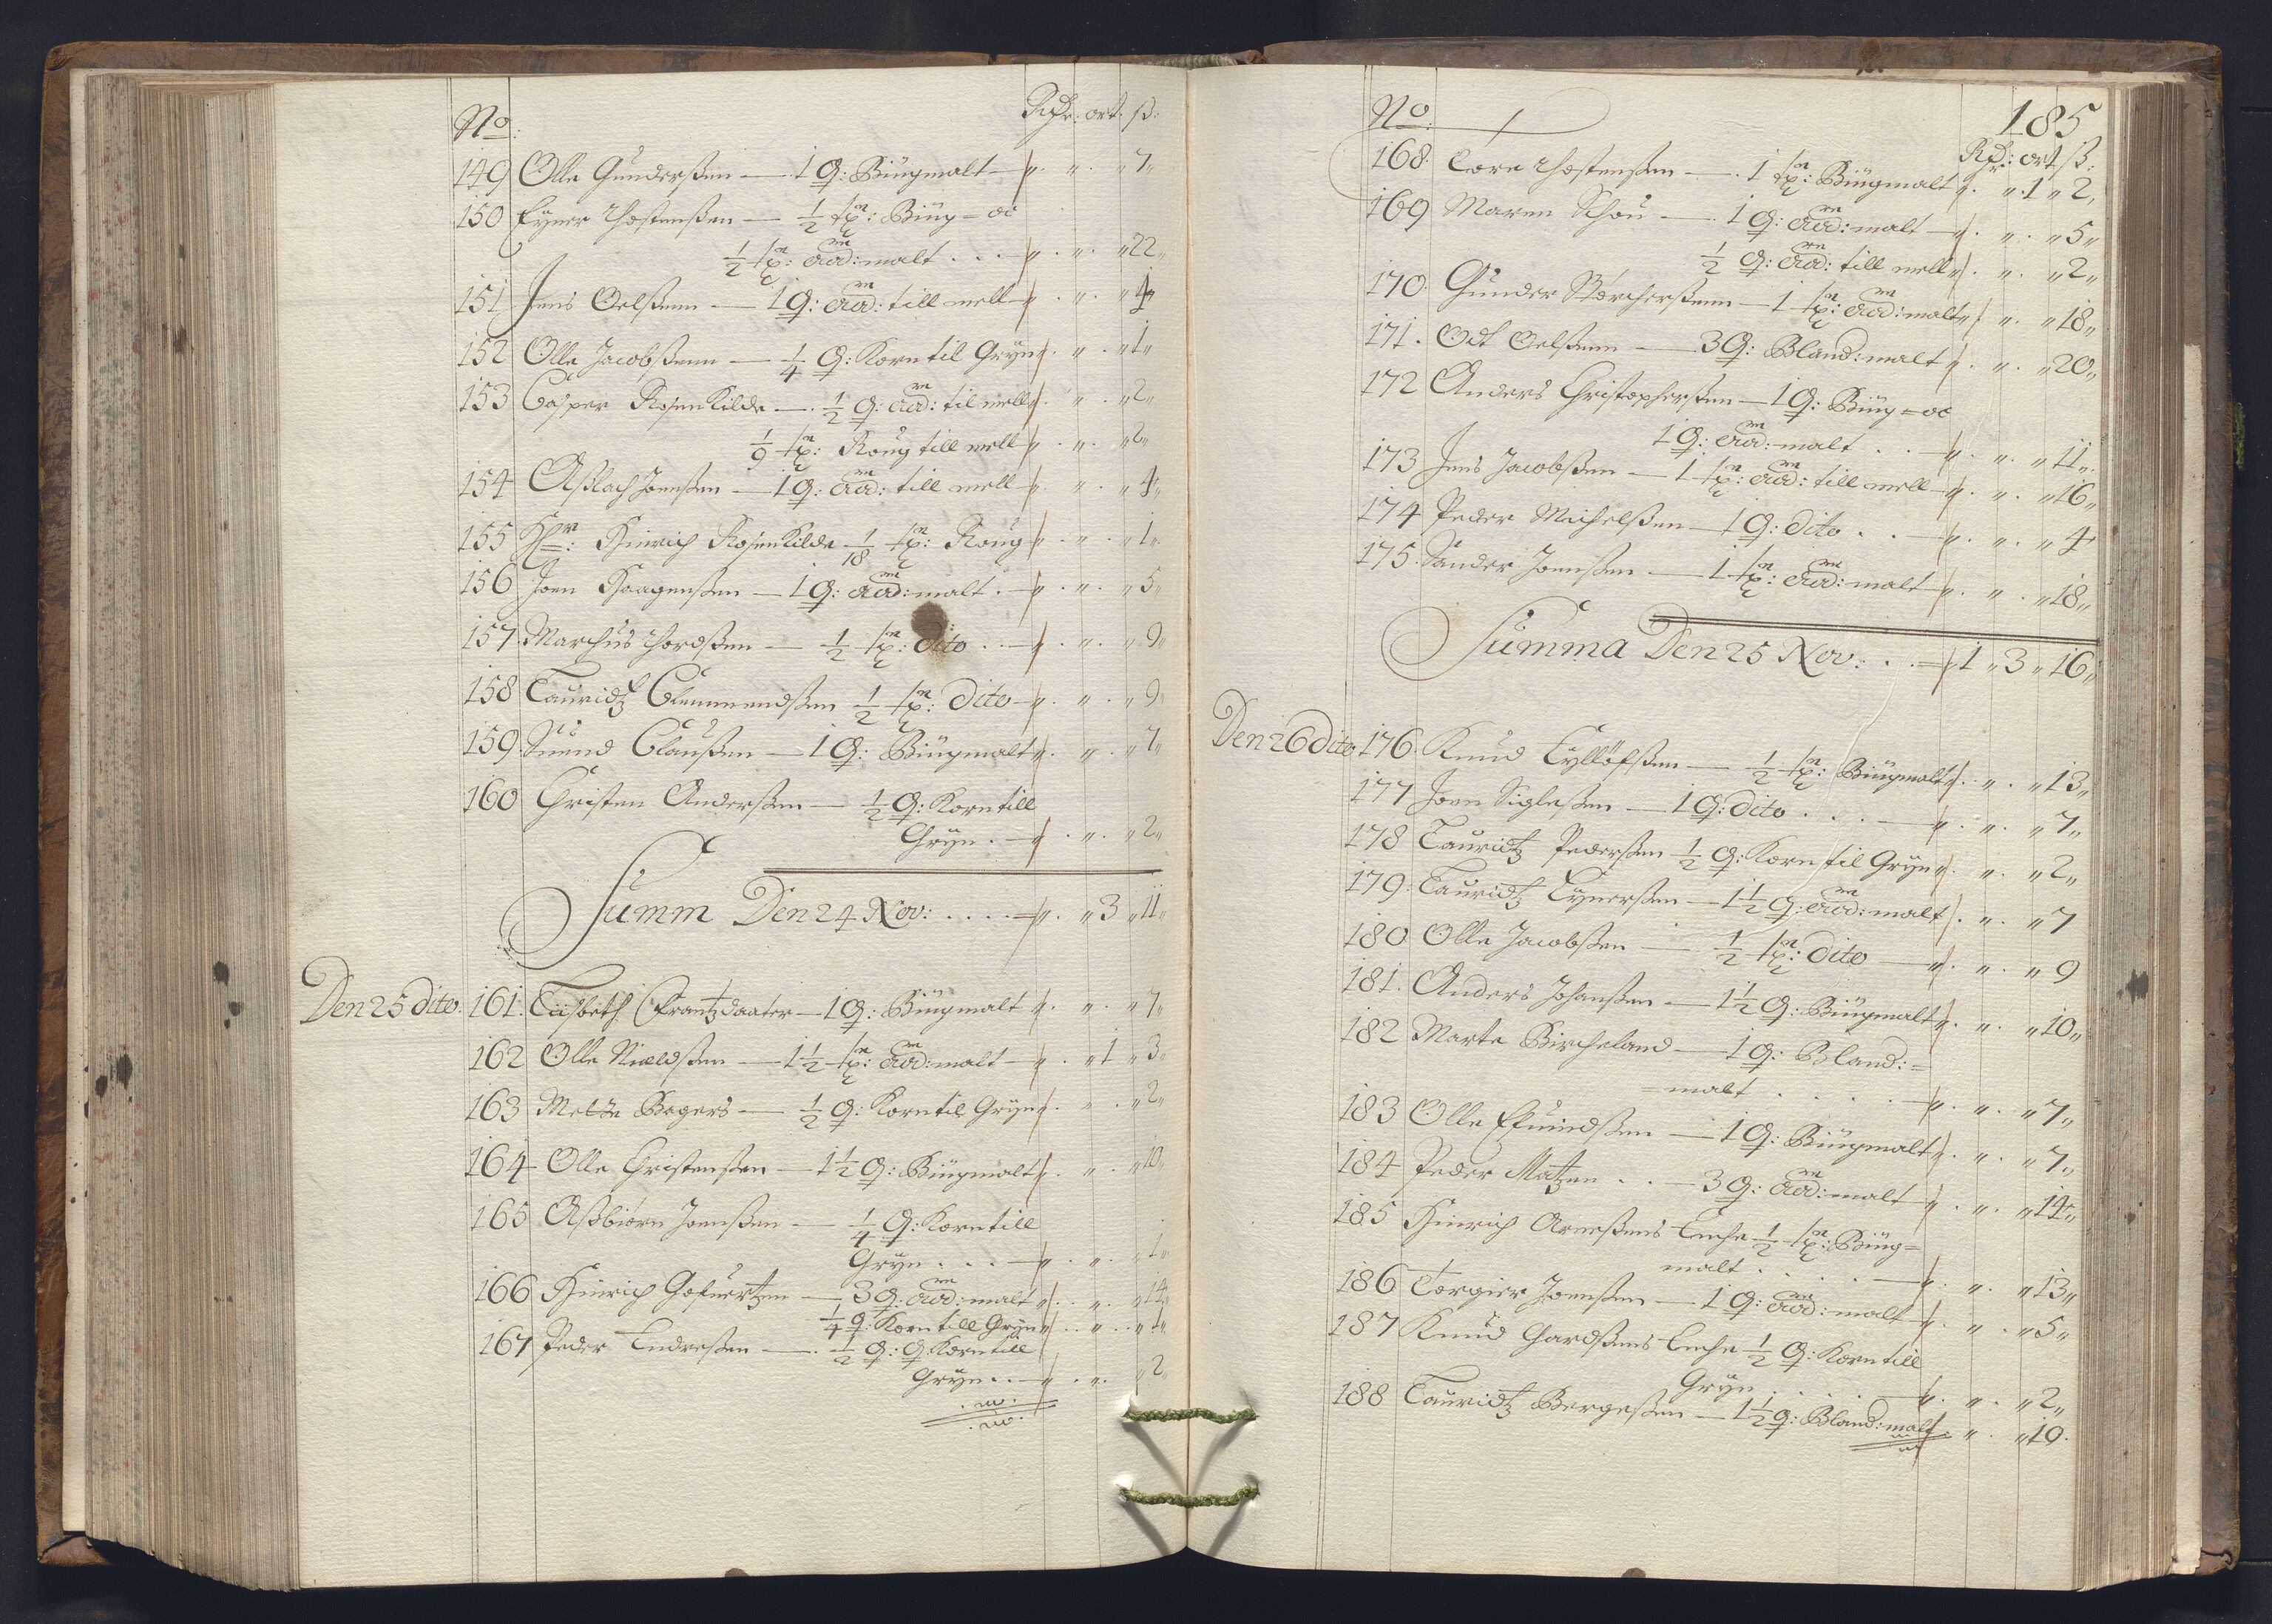 No: Rdr: ort: ß:
149 Olle Gunderßen — 1 Q: Biügmalt — „ „ „ 7„
150 Eyner Thostenßen — ½ tße: Biüg = oc
½ tße: aad: malt . . . — „ „ „ 22„
151 Jens Oelßenn — 1 Q: aad: till mell — „ „ „ 4„
152 Olle Jacobßenn — ¼ Q: Korn til Gryn „ „ „ 1„
153 Casper Rosenkilde — ½ Q: aad: til mell „ „ „ 2„
1/9 tße: Roug till mell „ „ „ 2„
154 Aßlach Joenßen — 1 Q: aad: till mell „ „ „ 4„
155 Hinrich Rosenkilde 1/18 tße: Roug „ „ „ 1„
156 Joen Haagenßen — 1 Q: aad: malt . — „ „ „ 5„
157 Marchus Thordßen — ½ tße: dito . . — „ „ „ 9„
158 Lauridtz Clemmendßen ½ tße: dito — „ „ „ 9„
159 Suend Claußen — 1 Q: Biügmalt „ „ „ 7„
160 Christen Anderßen — ½ Q: Korn till
Gryn . — „ „ „ 2„
Summ Den 24 Nov: . . . . — „ „ 3 „ 11„
Den 25 dito. 161. Liisbeth Frantzdaater — 1 Q: Biügmalt „ „ „ 7„
162 Olle Nieldßen — 1½ tße: aad: malt — „ „ 1 „ 3„
163 Mette Bagers — ½ Q: Korn til Gryn „ „ „ 2„
164 Olle Christenßen — 1½ Q: Biügmalt „ „ „ 10„
165 Aßbiørn Joenßen — ¼ Q: Korn till
Gryn . . . — „ „ „ 1„
166 Hinrich — 3 Q: aad: malt „ „ „ 14„
¼ Q: Korn till Gryn „ „ „ 1„
167 Peder Endreßen — ½ Q: Q Korn till
Gryn . . — „ „ „ 2„
185
No: Rdr: ort ß:
168. Tore Thostenßen — 1 tße: Biügmalt „ „ 1 „ 2„
169 Maren Schou — 1 Q: aad: malt — „ „ „ 5„
½ Q: aad: till mell „ „ „ 2„
170. Gunder Børcherßenn — 1 tße: aad: malt „ „ „ 18„
171. Odt Oelßenn — 3 Q: Bland: malt „ „ „ 20„
172 Anders Christopherßen — 1 Q: Biüg = oc
1 Q: aad: malt . . — „ „ „ 11„
173 Jens Jacobßen — 1 tße: aad: till mell — „ „ „ 16„
174 Peder Michelßen — 1 Q: dito . . — „ „ „ 4„
175. Sander Joenßen — 1 tße: aad: malt „ „ „ 18„
Summa Den 25 Nov: . . — 1 „ 3 „ 16„
Den 26 dito 176. Knud Tylløfßen — ½ tße: Biügmalt „ „ „ 13„
177 Joen Sigleßen — 1 Q: dito . . . — „ „ „ 7„
178 Lauridtz Pederßen ½ Q: Korn til Gryn „ „ „ 2„
179. Lauridtz Eynerßen — 1½ Q: aad: malt „ „ „ 7
180 Olle Jacobßen — ½ tße: dito — „ „ „ 9
181. Anders Johanßen — 1½ Q: Biügmalt „ „ „ 10„
182 Marte Bircheland — 1 Q: Bland: =
= malt . . . . — „ „ „ 7„
183 Olle Efuindßen — 1 Q: Biügmalt „ „ „ 7„
184 Peder Matzen . . — 3 Q: aad: malt — „ „ „ 14„
185 Hinrich Arneßens Enche ½ tße: Biüg =
malt . . . . — „ „ „ 13„
186 Torgier Joenßen — 1 Q: aad: malt „ „ „ 5„
187 Knud Thordßens Enche ½ Q: Korn till
Gryn . . . . — „ „ „ 2„
188 Lauridtz Bergeßen — 1½ Q: Bland: malt „ „ „ 10.